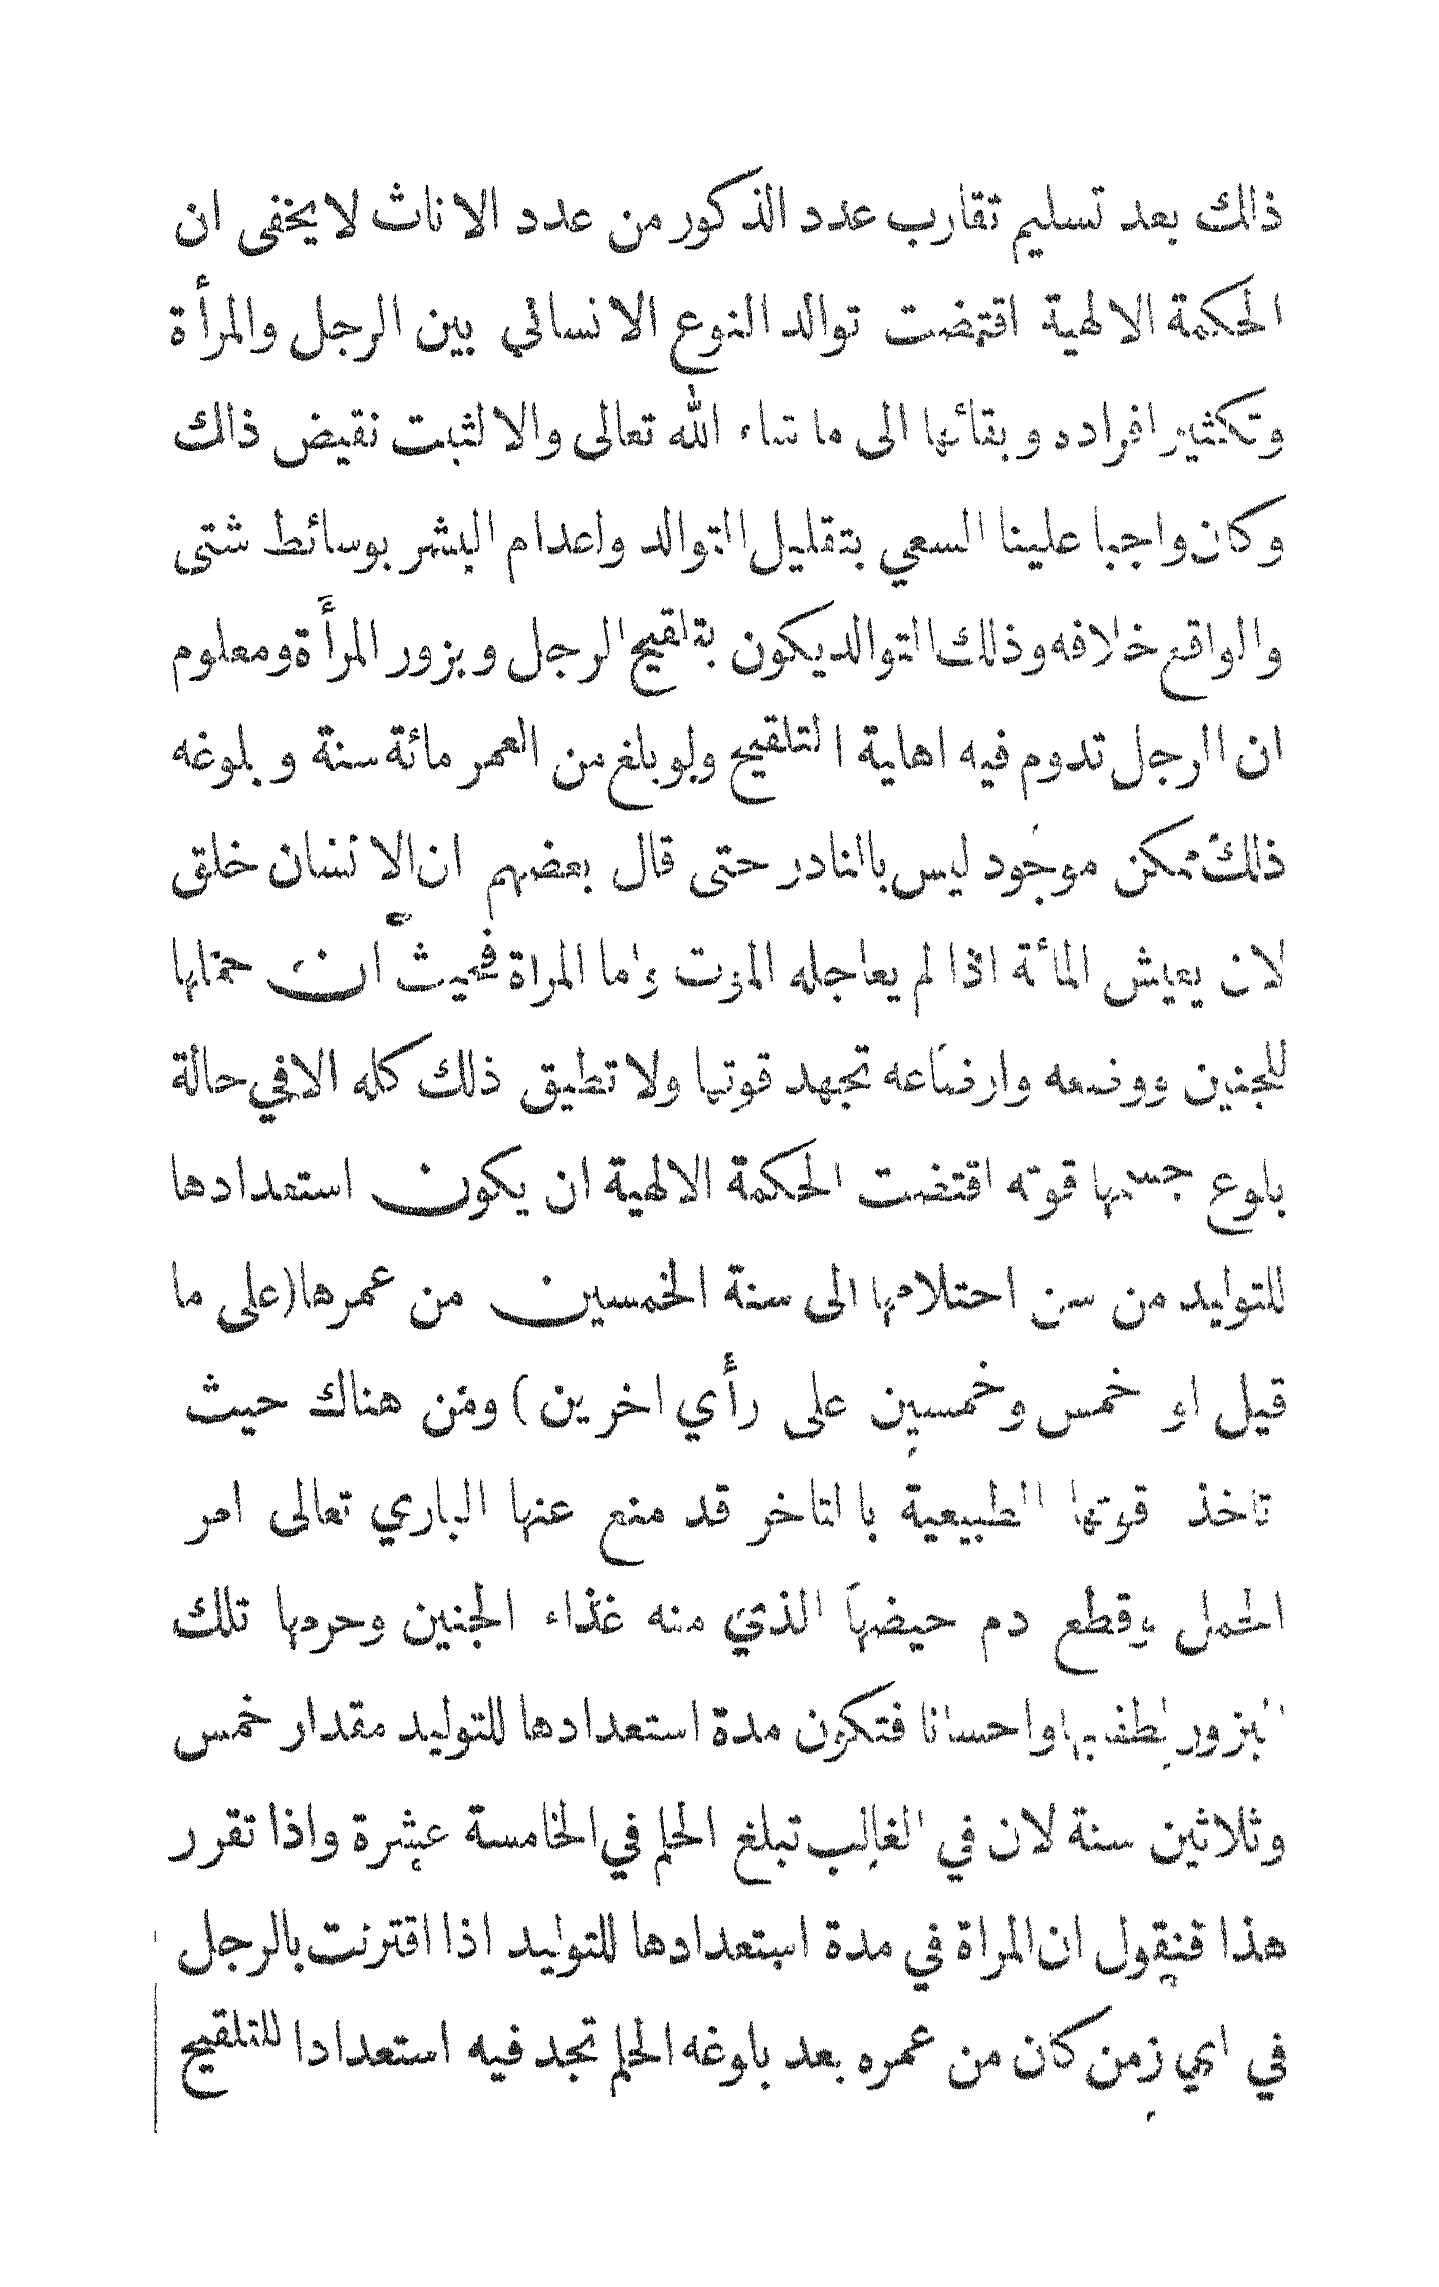 ذلك بعد تسليم تقارب عدد الذكور من عدد الاناث لا يخفى ان
الحكمة الالهية اقتضت توالد النوع الانساني بين الرجل والمرأة
وتكثير افراده وبقائها الى ما شاء الله تعالى والا لثبت نقيض ذلك
وكان واجبا علينا السعي بتقليل التوالد واعدام البشر بوسائط شتى
والواقع خلافه وذلك التوالد يكون بتلقيح الرجل وبزور المرأة ومعلوم
ان الرجل تدوم فيه اهلية التلقيح ولو بلغ من العمر مائة سنة وبلوغه
ذلك ممكن موجود ليس بالنادر حتى قال بعضهم ان الانسان خلق
لان يعيش المائة اذا لم يعاجله الموت واما المراة فحيث ان حملها
للجنين ووضعه وارضاعه تجهد قوتها ولا تطيق ذلك كله الا في حالة
بلوع جسمها قوته اقتضت الحكمة الالهية ان يكون استعدادها
للتوليد من سن احتلامها الى سنة الخمسين من عمرها (على ما
قيل او خمس وخمسين على رأي اخرين) ومن هناك حيث
تاخذ قوتها الطبيعية بالتاخر قد منع عنها الباري تعالى امر
الحمل وقطع دم حيضها الذي منه غذاء الجنين وحرمها تلك
البزور لطفا بها واحسانا فتكون مدة استعدادها للتوليد مقدار خمس
وثلاثين سنة لان في الغالب تبلغ الحلم في الخامسة عشرة واذا تقرر
هذا فنقول ان المراة في مدة استعدادها للتوليد اذا اقترنت بالرجل
في اي زمن كان من عمره بعد بلوغه الحلم تجد فيه استعدادا للتلقيح